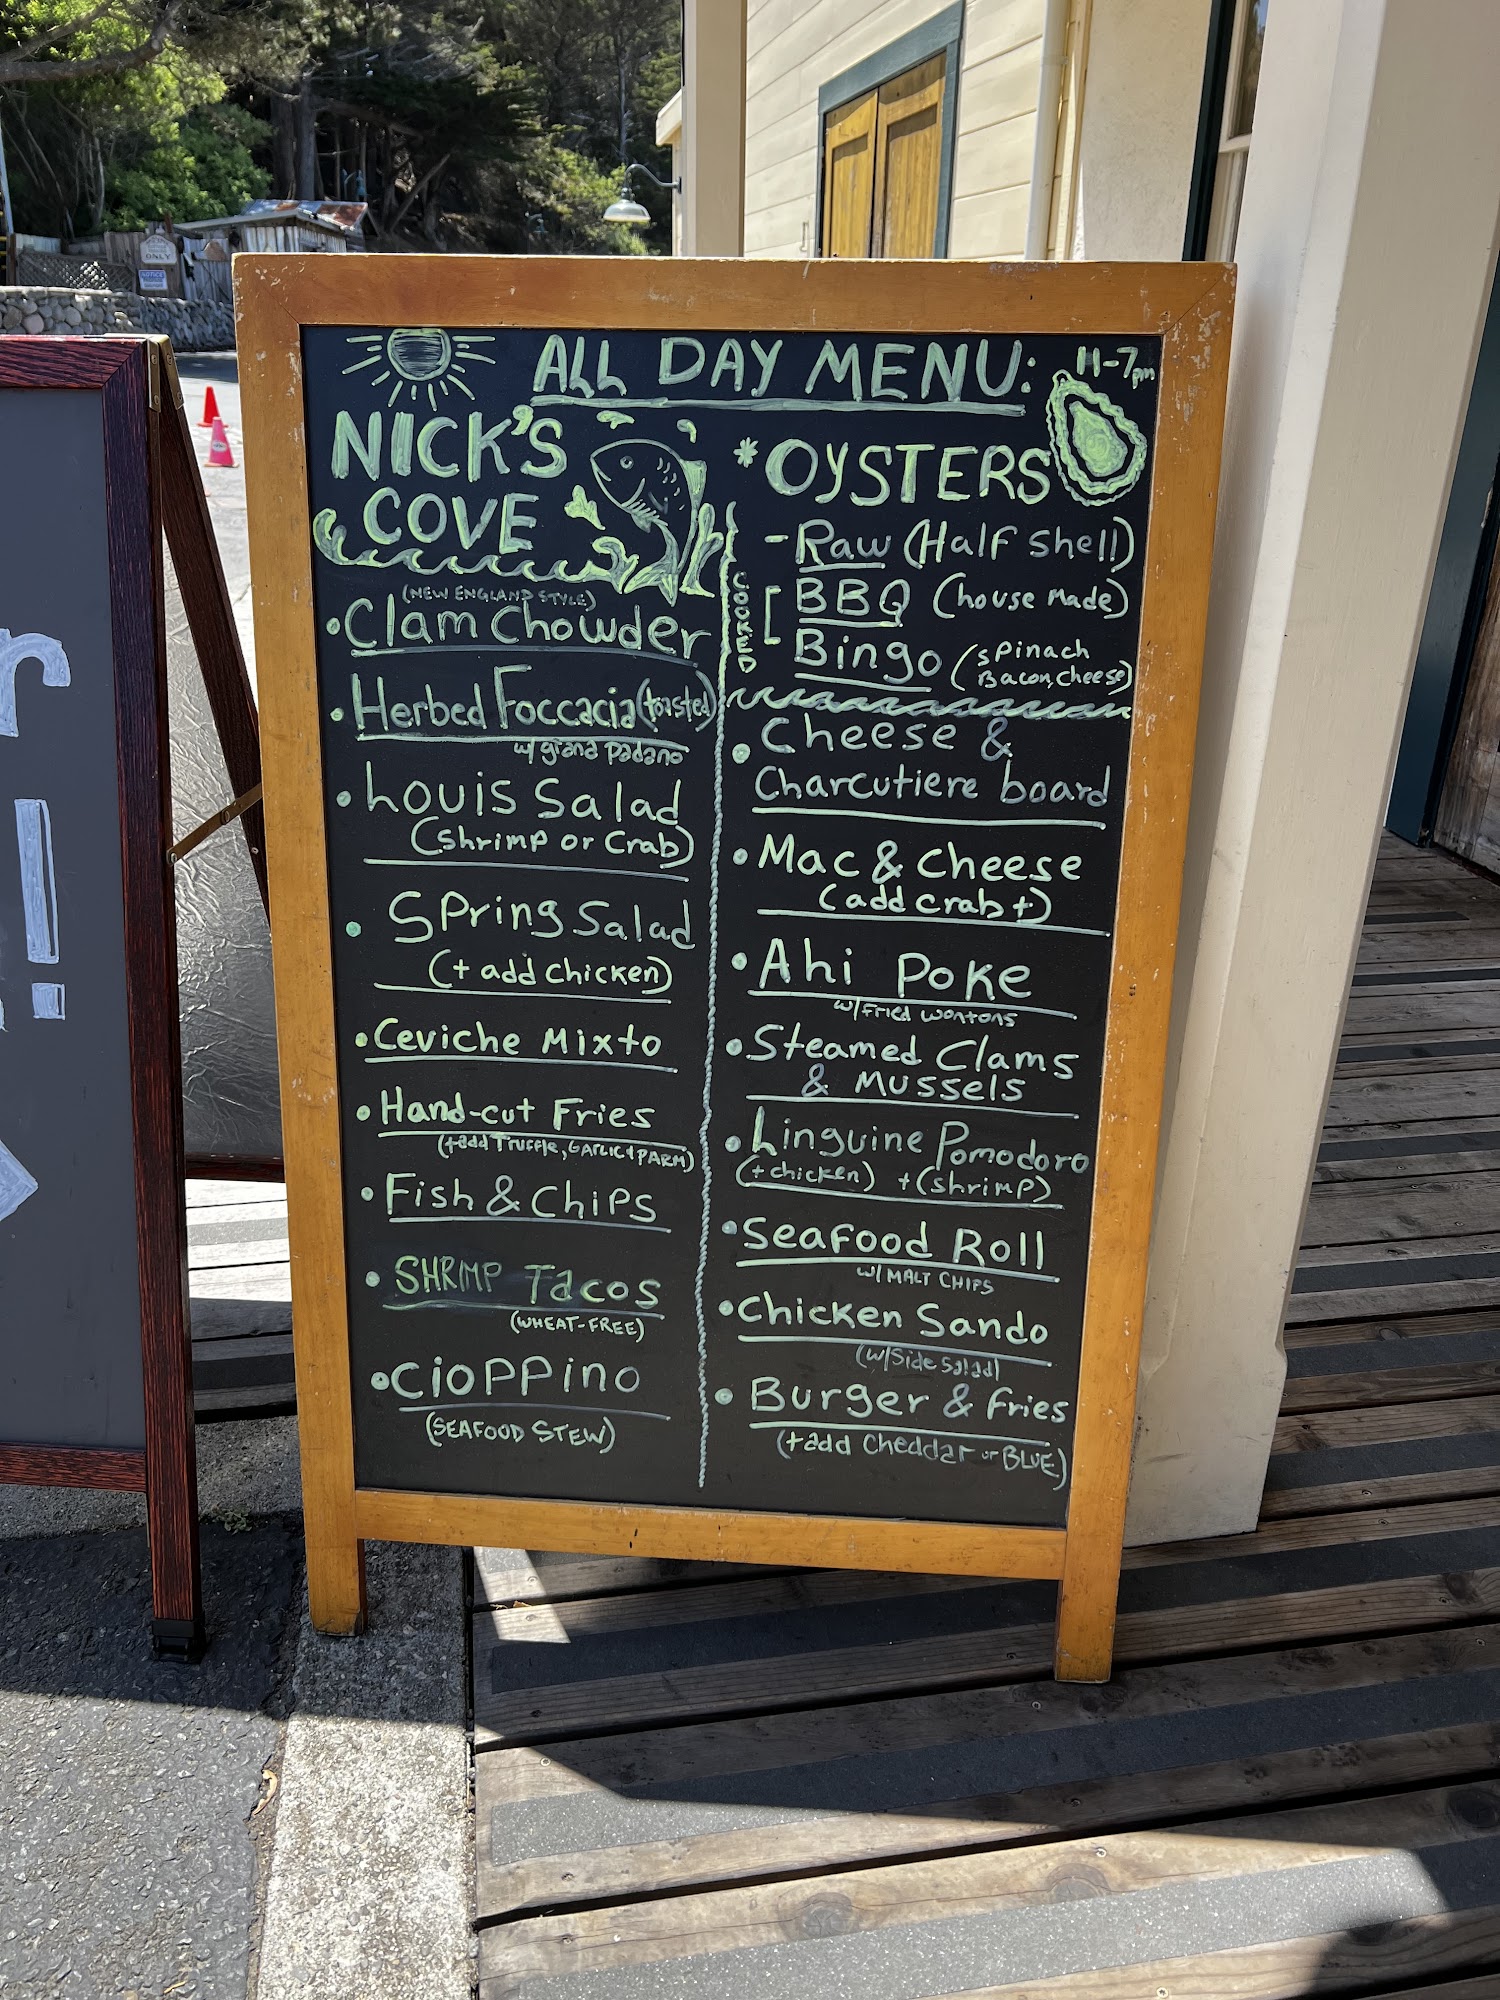 ALL DAY MENU: 11-7pm
NICK'S
COVE
(NEW ENGLAND STYLE)
• Clam Chowder
• Herbed Foccacia (toasted)
w/ grana Padano
• Louis Salad
(shrimp or crab)
• Spring Salad
(+ add chicken)
• Ceviche Mixto
• Hand-cut Fries
(+add Truffle, GARLIC & PARM)
• Fish & Chips
• SHRIMP Tacos
(WHEAT-FREE)
• Cioppino
(SEAFOOD STEW)
* OYSTERS
- Raw (Half shell)
COOKED
BBQ (house made)
Bingo (spinach
Bacon, cheese)
• Cheese &
Charcutiere board
• Mac & cheese
(add crab +)
• Ahi Poke
w/ fried wontons
• Steamed Clams
& Mussels
• Linguine Pomodoro
(+ chicken) + (shrimp)
• Seafood Roll
w/ MALT CHIPS
• Chicken Sando
(w/ side salad)
• Burger & fries
(+add cheddar or BLUE)
ONLY
NOTICE
r
!